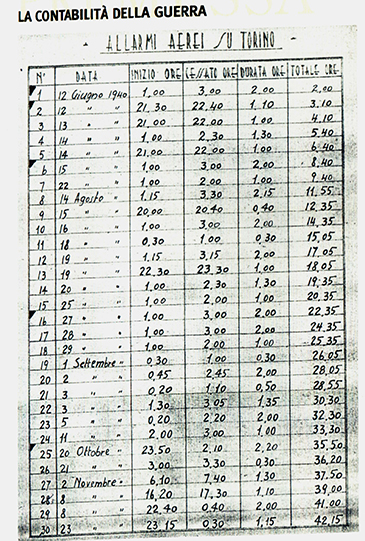 LA CONTABILITÀ DELLA GUERRA
- ALLARMI AEREI SU TORINO -
N° DATA INIZIO ORE CESSATO ORE DURATA ORE TOTALE ORE
1 12 Giugno 1940 1,00 3,00 2,00 2,00
2 12 " " 21,30 22,40 1,10 3,10
3 13 " " 21,00 22,00 1,00 4,10
4 14 " " 1,00 2,30 1,30 5,40
5 14 " " 21,00 22,00 1,00 6,40
6 15 " " 1,00 3,00 2,00 8,40
7 22 " " 1,00 2,00 1,00 9,40
8 14 Agosto " 1,15 3,30 2,15 11,55
9 15 " " 20,00 20,40 0,40 12,35
10 16 " " 1,00 3,00 2,00 14,35
11 18 " " 0,30 1,00 0,30 15,05
12 19 " " 1,15 3,15 2,00 17,05
13 19 " " 22,30 23,30 1,00 18,05
14 20 " " 1,00 2,30 1,30 19,35
15 25 " " 1,00 2,00 1,00 20,35
16 27 " " 1,00 3,00 2,00 22,35
17 28 " " 1,00 3,00 2,00 24,35
18 29 " " 1,00 2,00 1,00 25,35
19 1 Settembre " 0,30 1,00 0,30 26,05
20 2 " " 0,45 2,45 2,00 28,05
21 3 " " 0,20 1,10 0,50 28,55
22 3 " " 1,30 3,05 1,35 30,30
23 5 " " 0,20 2,20 2,00 32,30
24 11 " " 2,00 3,00 1,00 33,30
25 20 Ottobre " 23,50 2,10 2,20 35,50
26 21 " " 3,00 3,30 0,30 36,20
27 2 Novembre " 6,10 7,40 1,30 37,50
28 8 " " 16,20 17,30 1,10 39,00
29 8 " " 22,40 0,40 2,00 41,00
30 23 " " 23,15 0,30 1,15 42,15